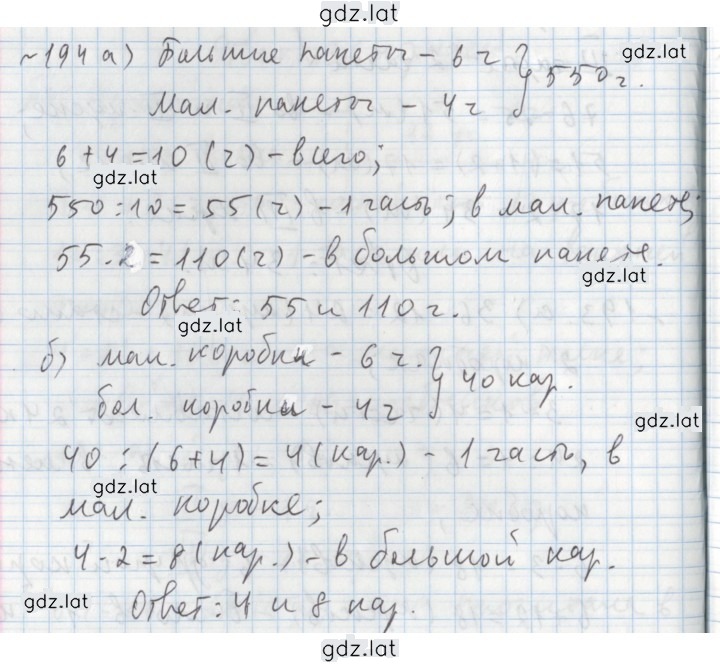 gdz.lat
~194 а) Большие пакеты – 6 ч } 550 г. gdz.lat
мал. пакеты – 4 ч
6 + 4 = 10 (ч) – всего;
gdz.lat
550 : 10 = 55 (г) – 1 часть; в мал. пакете;
55 · 2 = 110 (г) – в большом пакете.
gdz.lat
Ответ: 55 и 110 г.
gdz.lat
б) мал. коробки – 6 ч. } 40 кар.
бол. коробки – 4 ч
gdz.lat
40 : (6 + 4) = 4 (кар.) – 1 часть, в
gdz.lat
мал. коробке;
4 · 2 = 8 (кар.) – в большой кор.
gdz.lat Ответ: 4 и 8 кар.
gdz.lat